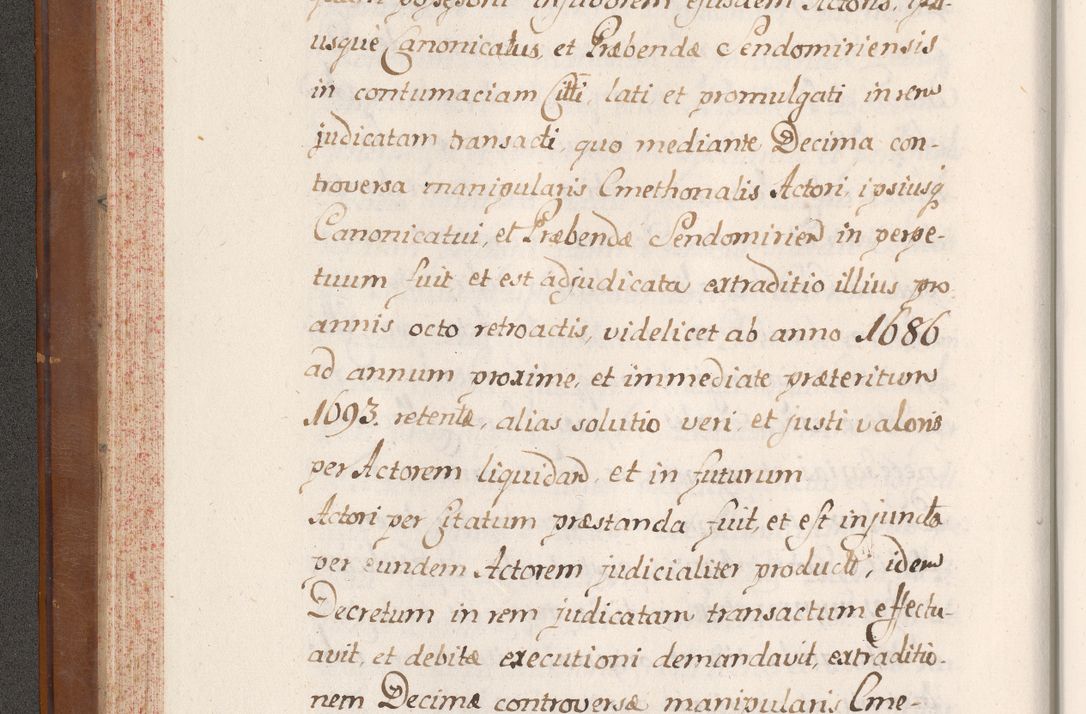 usque Canonicatus, et Præbendæ Sendomiriensis
in contumaciam Citti, lati, et promulgati in rem
judicatam transacti, quo mediante Decima con-
troversa manipularis Cmethonalis Actori, ipsiusq
Canonicatui, et Præbendæ Sendomirien in perpe-
tuum fuit et est adjudicata extraditio illius pro
annis octo retroactis, videlicet ab anno 1686
ad annum proxime, et immediate præteritum
1693. retentæ, alias solutio veri, et justi valoris
per Actorem liquidand, et in futurum
Actori per Citatum præstanda fuit, et est injuncta
per eundem Actorem judicialiter product, idem
Decretum in rem judicatam transactum effectu-
avit, et debitæ executioni demandavit, extraditio-
nem Decimæ controversæ manipularis Cme-